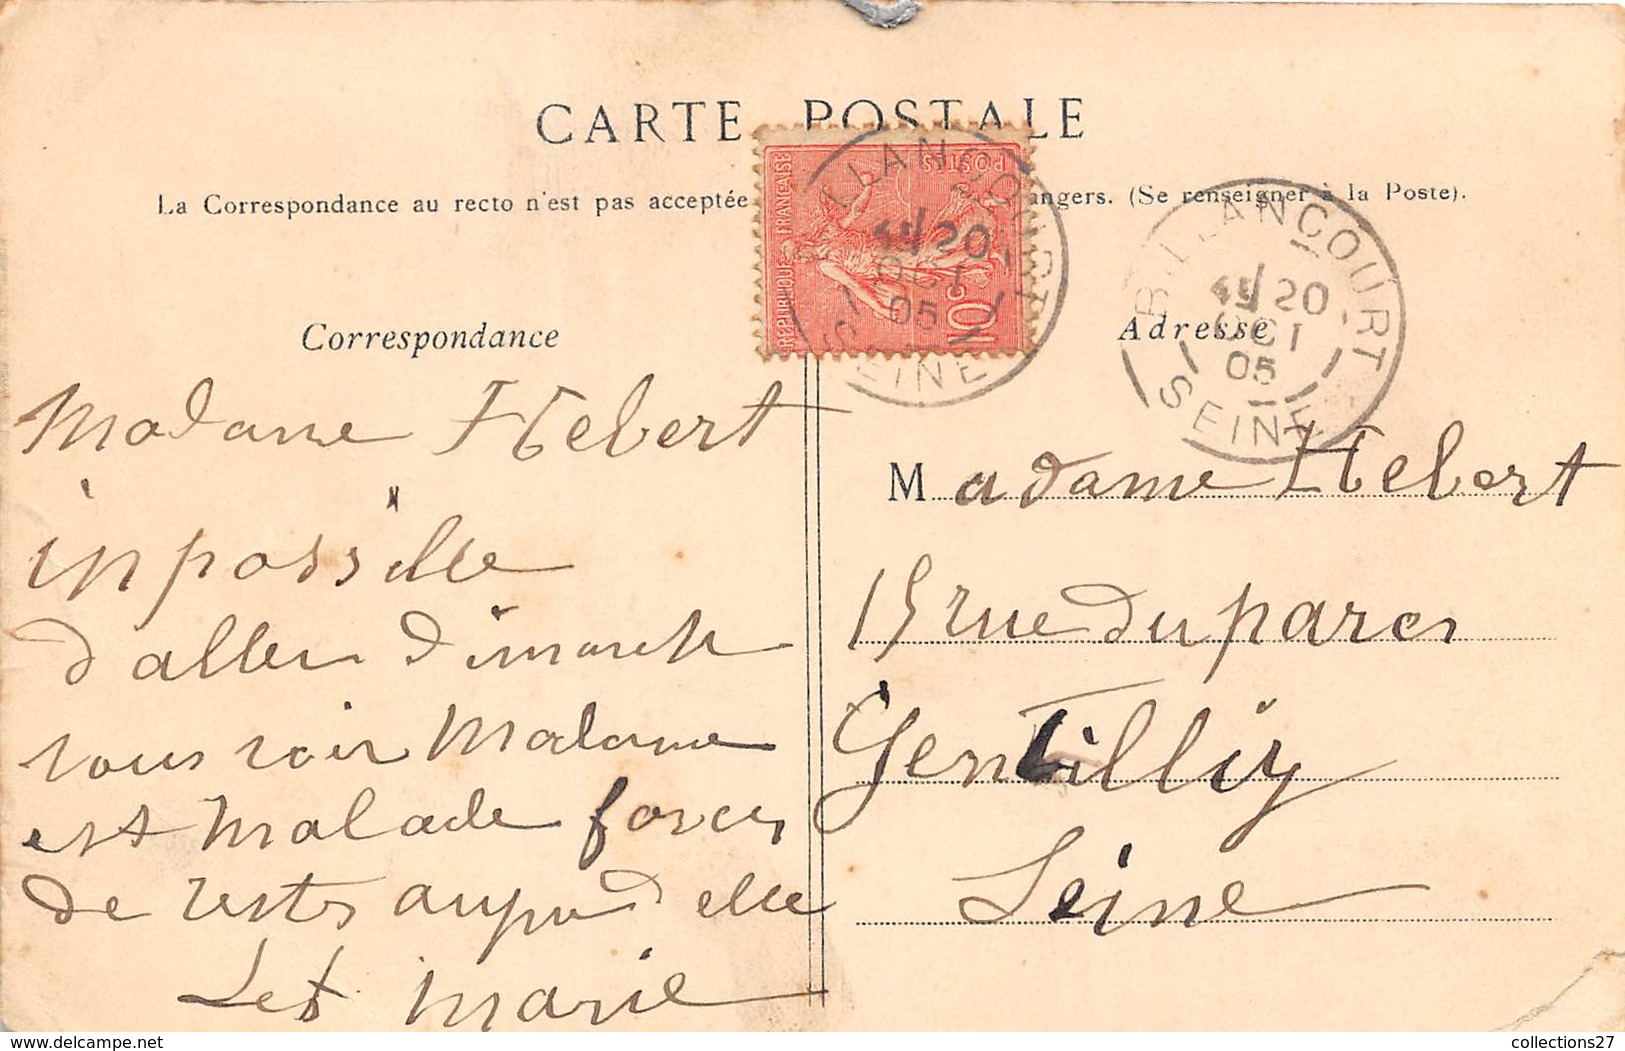 CARTE POSTALE
La Correspondance au recto n'est pas acceptée angers. (Se renseigner à la Poste).
RÉPUBLIQUE FRANÇAISE
POSTES
10c
BILLANCOURT
20
OCT
05
SEINE
BILLANCOURT
20
OCT
05
SEINE
Correspondance
Madame Hebert
inpossille
d aller dimanch
vous voir Madame
est malade forcer
de rester aupred elle
Let Marie
Adresse
Madame Hebert
15 rue du parc
Gentilliy
Seine
www.delcampe.net
collections27